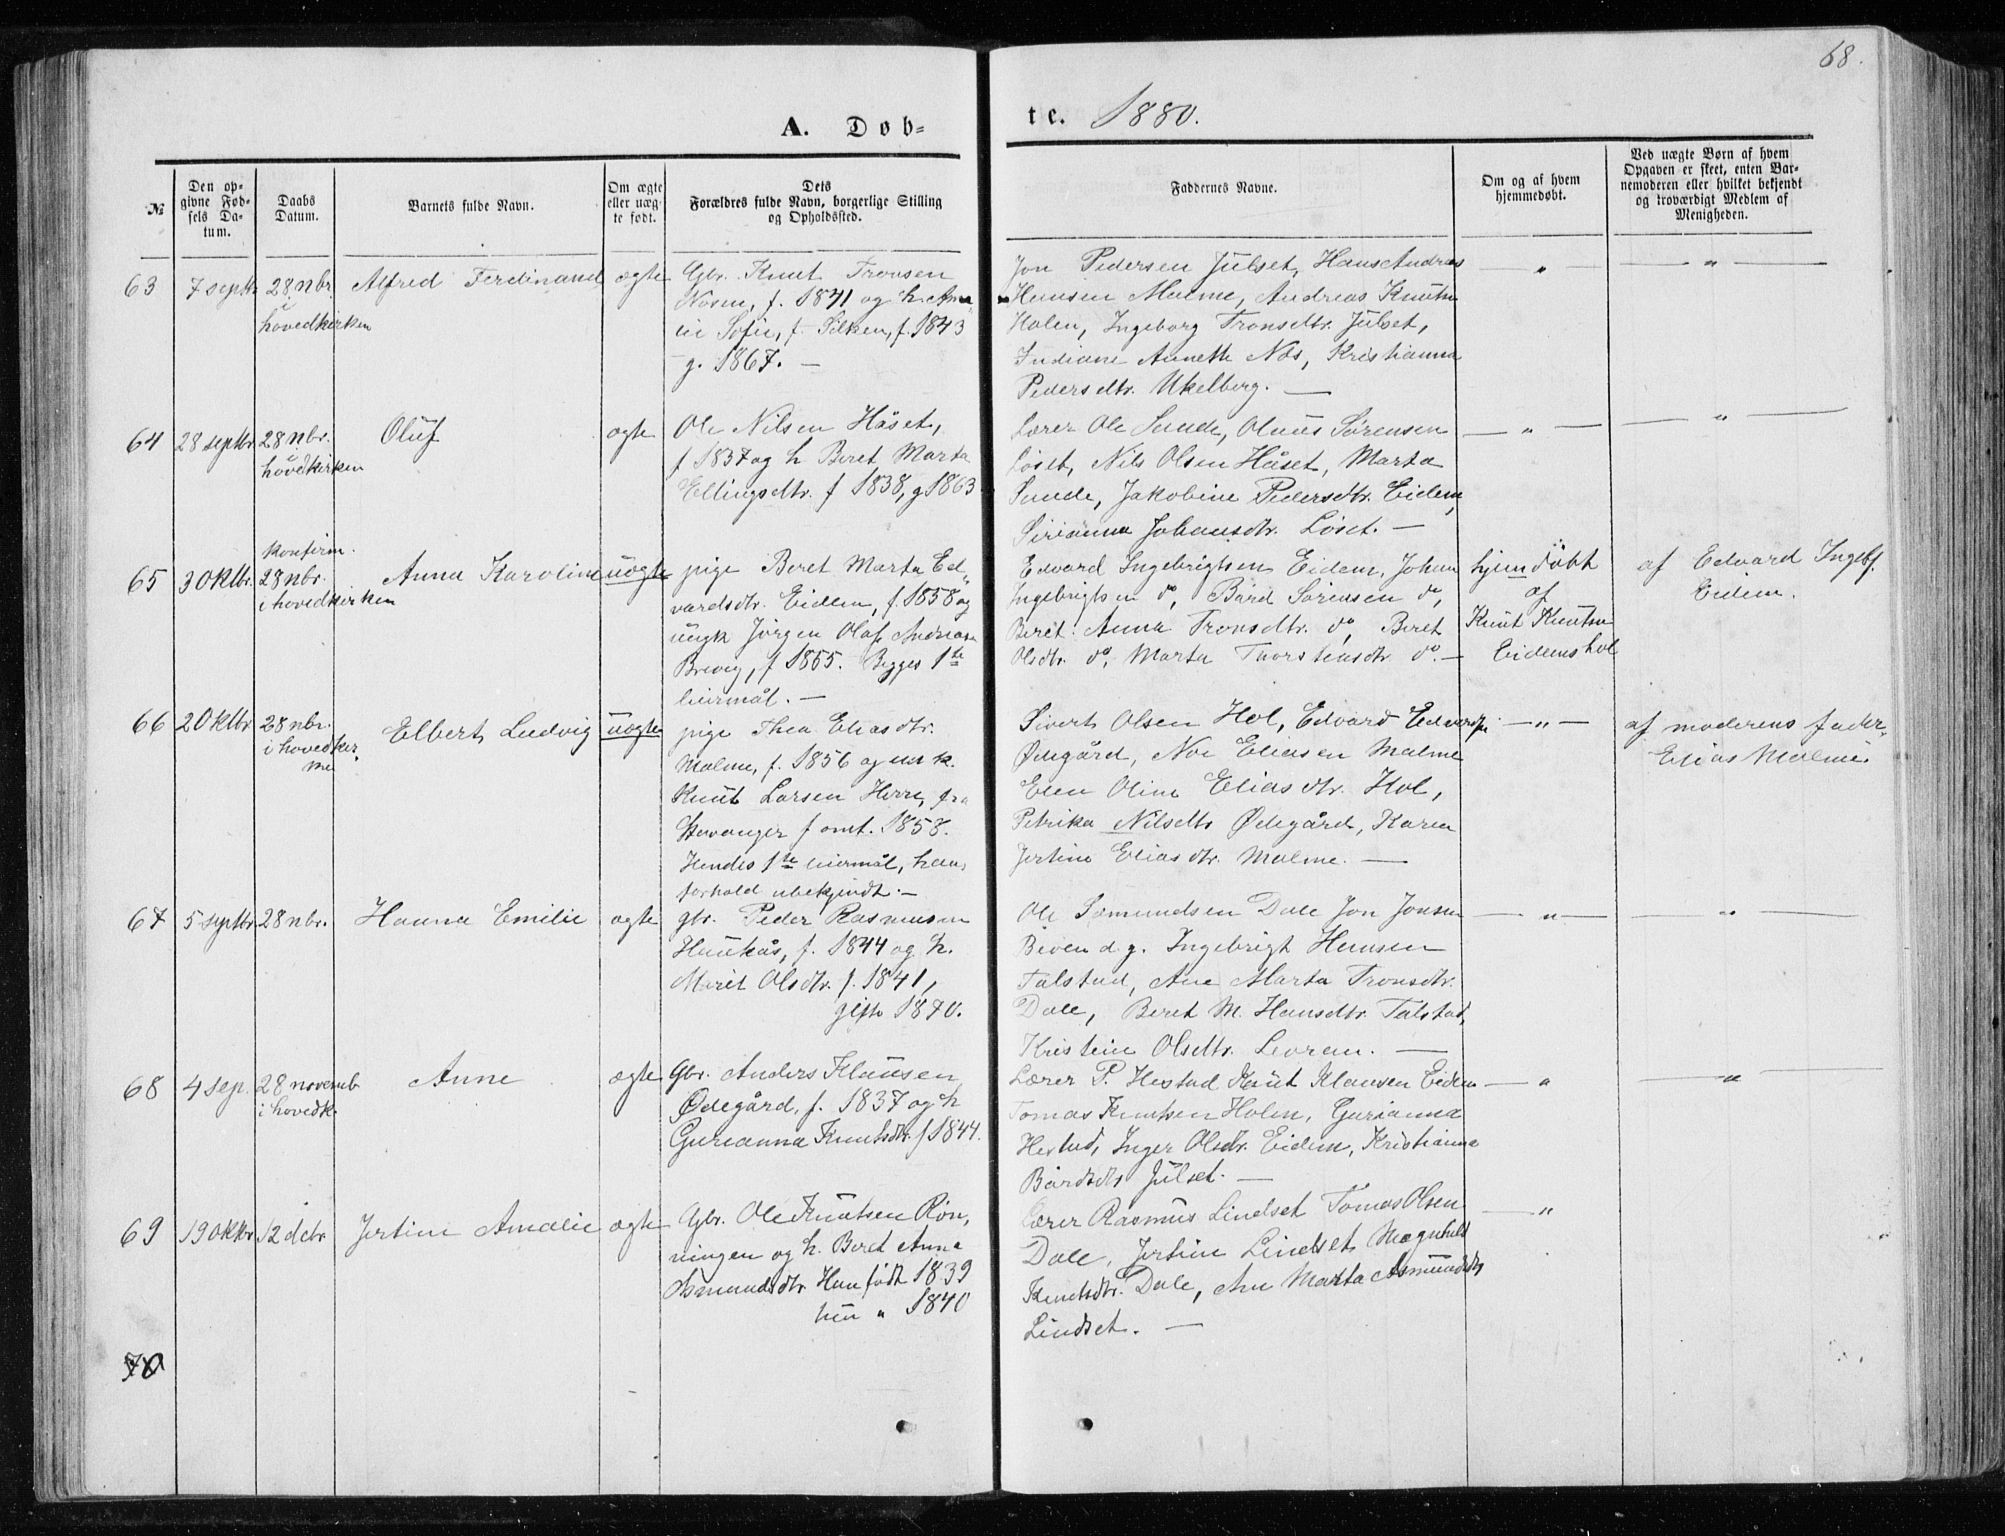 68.
A. Døbte. 1880.
№
Den opgivne Fødsels Datum.
Daabs Datum.
Barnets fulde Navn.
Om ægte eller uægte født.
Dets Forældres fulde Navn, borgerlige Stilling og Opholdssted.
Faddernes Navne.
Om og af hvem hjemmedøbt.
Ved uægte Børn af hvem Opgaven er skeet, enten Barnemoderen eller hvilket bekjendt og troværdigt Medlem af Menigheden.
63
7 septbr
28 nbr.
hovedkirken
Alfred Ferdinand
ægte
Gbr. Knut Tronsen
f. 1841 og h.
Sofie, f. Silken, f. 1843
g. 1867. —
Jon Pedersen Julset, Hans Andreas
Hansen Malme, Andreas Knutsn
Holen, Ingeborg Tronsdtr. Julset,
Indiane Annette Næs, Kristianna
Pedersdtr. Ukelberg. —
— " —
— " —
64
28 septbr.
28 nbr.
hovedkirken
Oluf
ægte
Ole Nilsen Håset,
f 1837 og h Beret Marta
Ellingsdtr. f 1838, g 1863
Lærer Ole Sunde, Olaus Sørensen
Löset, Nils Olsen Håset, Marta
Sunde, Jakobine Pedersdtr. Eidem,
Sirianna Johansdtr. Löset. —
— " —
— " —
65
3 oktbr.
konfirm.
28 nbr.
i hovedkirken
Anna Karoline
uægte
pige Beret Marta Ed„
vardsdtr. Eidem, f. 1858 og
ungk Jörgen Olaf Andreasn
Brevig, f 1855. Begges 1te
leiermål. —
Edvard Ingebrigtsen Eidem, Johan
Ingebrigtsen do, Bård Sörensen do,
Beret Anna Tronsdtr. do, Beret
Olsdtr. do, Marta Thorstensdtr do. —
hjemdöbt
af
Knut Knutsn
Eidemshol
af Edvard Ingebr.
Eidem.
66
2 oktbr
28 nbr.
i hovedkir„
Elbert Ludvig
uægte
pige Thea Eliasdtr.
Malme, f. 1856 og
Knut Larsen Herre, fra
Stavanger f omt. 1858.
Hendes 1te leiermål, hans
forhold ubekjendt. —
Sivert Olsen Hol, Edvard
Ødegård, Noe Eliasen Malme
Elen Oline Eliasdtr. Hol,
Petrika Nilsdtr Ødegård, Karen
Jertine Eliasdtr. Malme. —
— " —
af moderens fader,
Elias Malme.
67
5 septbr.
28 nbr.
Hanna Emilie
ægte
gbr. Peder Rasmusen
Haukås, f. 1844 og h.
Marit Olsdtr. f. 1841,
gifte 1870.
Ole Sæmundsen Dale Jon Jonsen
d.y. Ingebrigt Hansen
Talstad, Ane Marta Tronsdtr.
Dale, Beret M. Hansdtr. Talstad,
Kristine Olsdtr. Levren. —
— " —
— " —
68
4 sep.
28 novemb
i hovedk.
Anne
ægte
Gbr. Anders Klausen
Ødegård, f. 1837 og h
Gurianna Knutsdtr. f 1844.
Lærer P. Hestad Knut Klausen Eidem
Tomas Knutsen Holen, Gurianna
Hestad, Inger Olsdtr. Eidem, Kristianna
Bårdsdtr Julset. —
— "
— " —
69
19 oktbr
12 dcbr
Jertine Amalie
ægte
Gbr. Ole Knutsen Rön„
ningen og h. Beret Anna
Asmundsdtr. Han födt 1839
hun " 1840
Lærer Rasmus Lindset Tomas Olsen
Dale, Jertine Lindset, Magnhild
Knutsdtr. Dale, Ane Marta Asmundsdtr
Lindset. —
— "
70